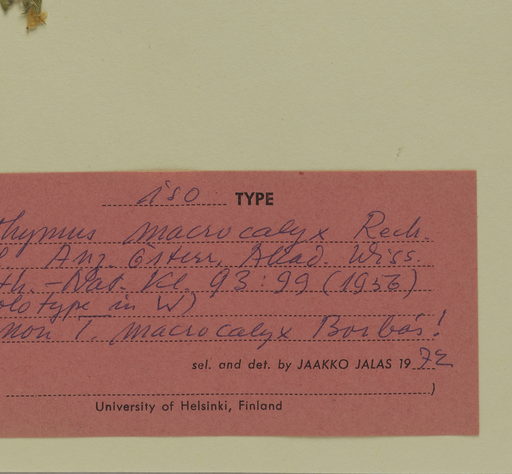 iso TYPE
Thymus macrocalyx Rech.
f. Anz. Österr. Akad. Wiss.
th.-Nat. Kl. 93:99 (1956)
olotype in W)
non T. macrocalyx Borbás!
sel. and det. by JAAKKO JALAS 1972
)
University of Helsinki, Finland